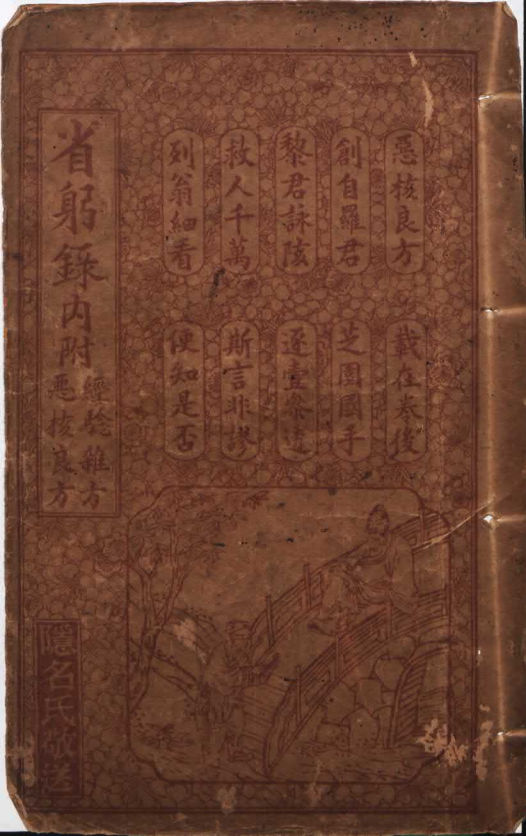 惡核良方
載在卷後
創自羅君
芝園國手
黎君詠陔
逐壹參透
救人千萬
斯言非謬
列翁細看
便知是否
省躬錄內附
經驗雜方
惡核良方
隱名氏敬送